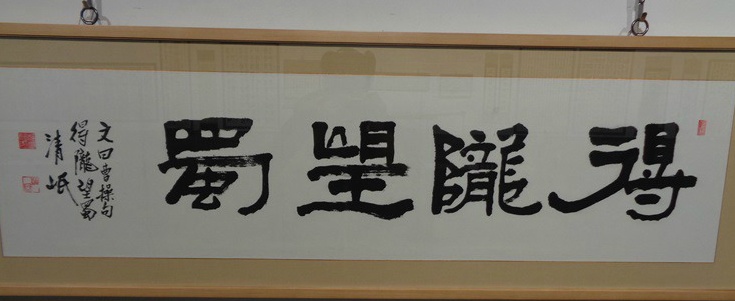 得隴望蜀
文曰曹操句
得隴望蜀
清岷